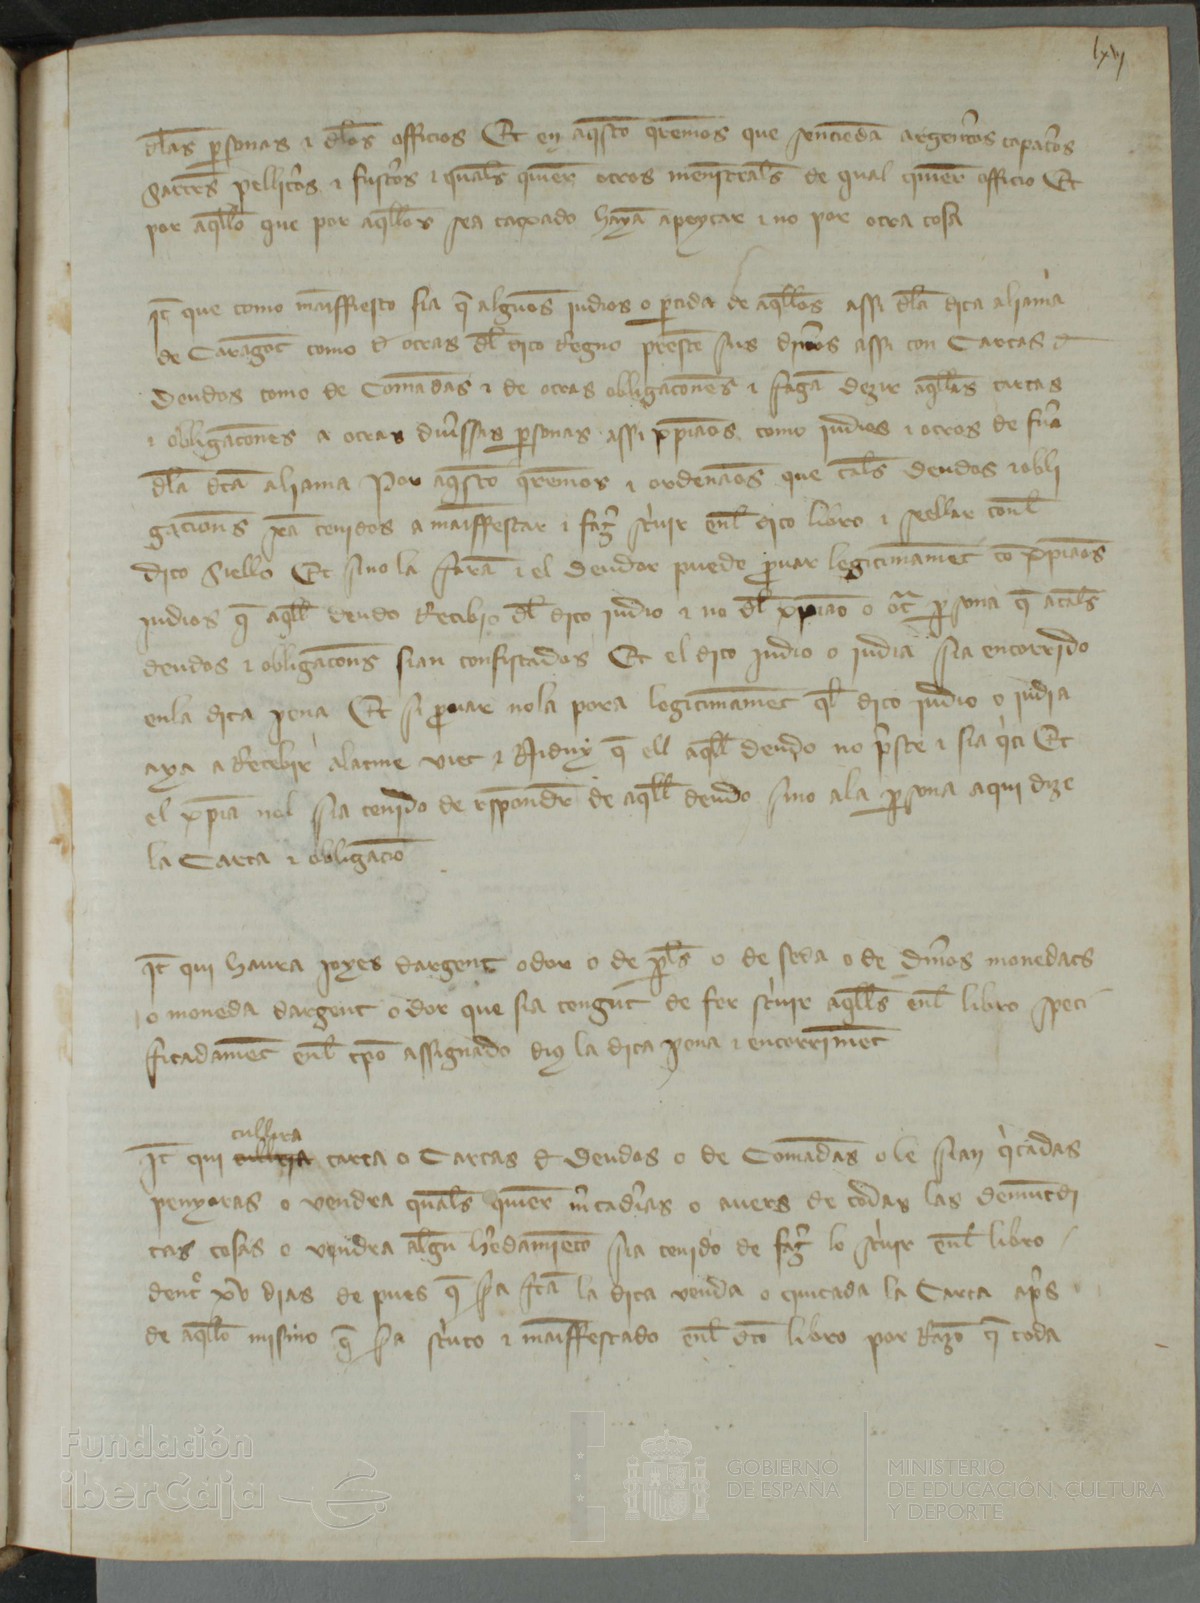 lxvj
dlas psonas ⁊ dlos officios Et en aqsto qremos que sentiendā argenteros capateros
Sartres pelliceros ⁊ fusteros ⁊ quals quier otros menestrals de qual quier officio Et
por aqllo que por aqllos sea taxado hayā apeytar ⁊ no por otra cosa
It que como maniffiesto sia q̄ algunos judios o partida de aqllos assi dla dita aliama
de Caragoc como d otras dl dito Regno preste sus dineros assi con Cartas d
Deudos como de Comādas ⁊ de otras obligacones ⁊ fagā dezir aqllas cartas
⁊ obligacones a otras diuersas psonas assi xpianos como judios ⁊ otros de fuera
dla dta aliama Por aqsto qremos ⁊ ordenamos que tals Deudos ⁊ obli
gacions sea tenidos a maniffestar ⁊ fazer scriuir enl dito libro ⁊ sellar conl
dito Siello Et si no la farā ⁊ el Deudor puede prouar legitimamet co xpianos
judios q̄ aqll deudo Recibio dl dito judio ⁊ no dl xpiano o otra psona q̄ atals
deudos ⁊ obligacons sian confiscados Et el dito judio o judia sia encorrido
enla dita pena Et si prouar nola pora legitimamet ql dito judio o judia
aya a Recebir alatme viet ⁊ Niduy q̄ ell aqll deudo no preste ⁊ sia qti Et
el xpia nol sia tenido de respondre de aqll deudo sino ala psona aqui dize
la Carta ⁊ obligacio
It qui haura joyes dargent o dor o de perls o de seda o de dineros monedats
o moneda dargent o dor que sia tengut de fer scriuir aqlls enl libro speci
ficadamet enl tpo assignado dius la dita pena ⁊ encorrimet
cullira
It qui carta o Cartas d Deudos o de Comādas o le sian qitadas
penyoras o vendra quals quier mercaderias o auers de todas las demut di
tas cosas o vendra algun heredamieto sia tenido de fazer lo scriuir enl libro
dentro xv dias de pues q̄ sea feta la dita venda o quitada la Carta apres
de aqllo mismo q̄ sea scriuto ⁊ maniffestado enl dto libro por Razo q̄ toda
Fundación
iberCaja
GOBIERNO
DE ESPAÑA
MINISTERIO
DE EDUCACIÓN, CULTURA
Y DEPORTE